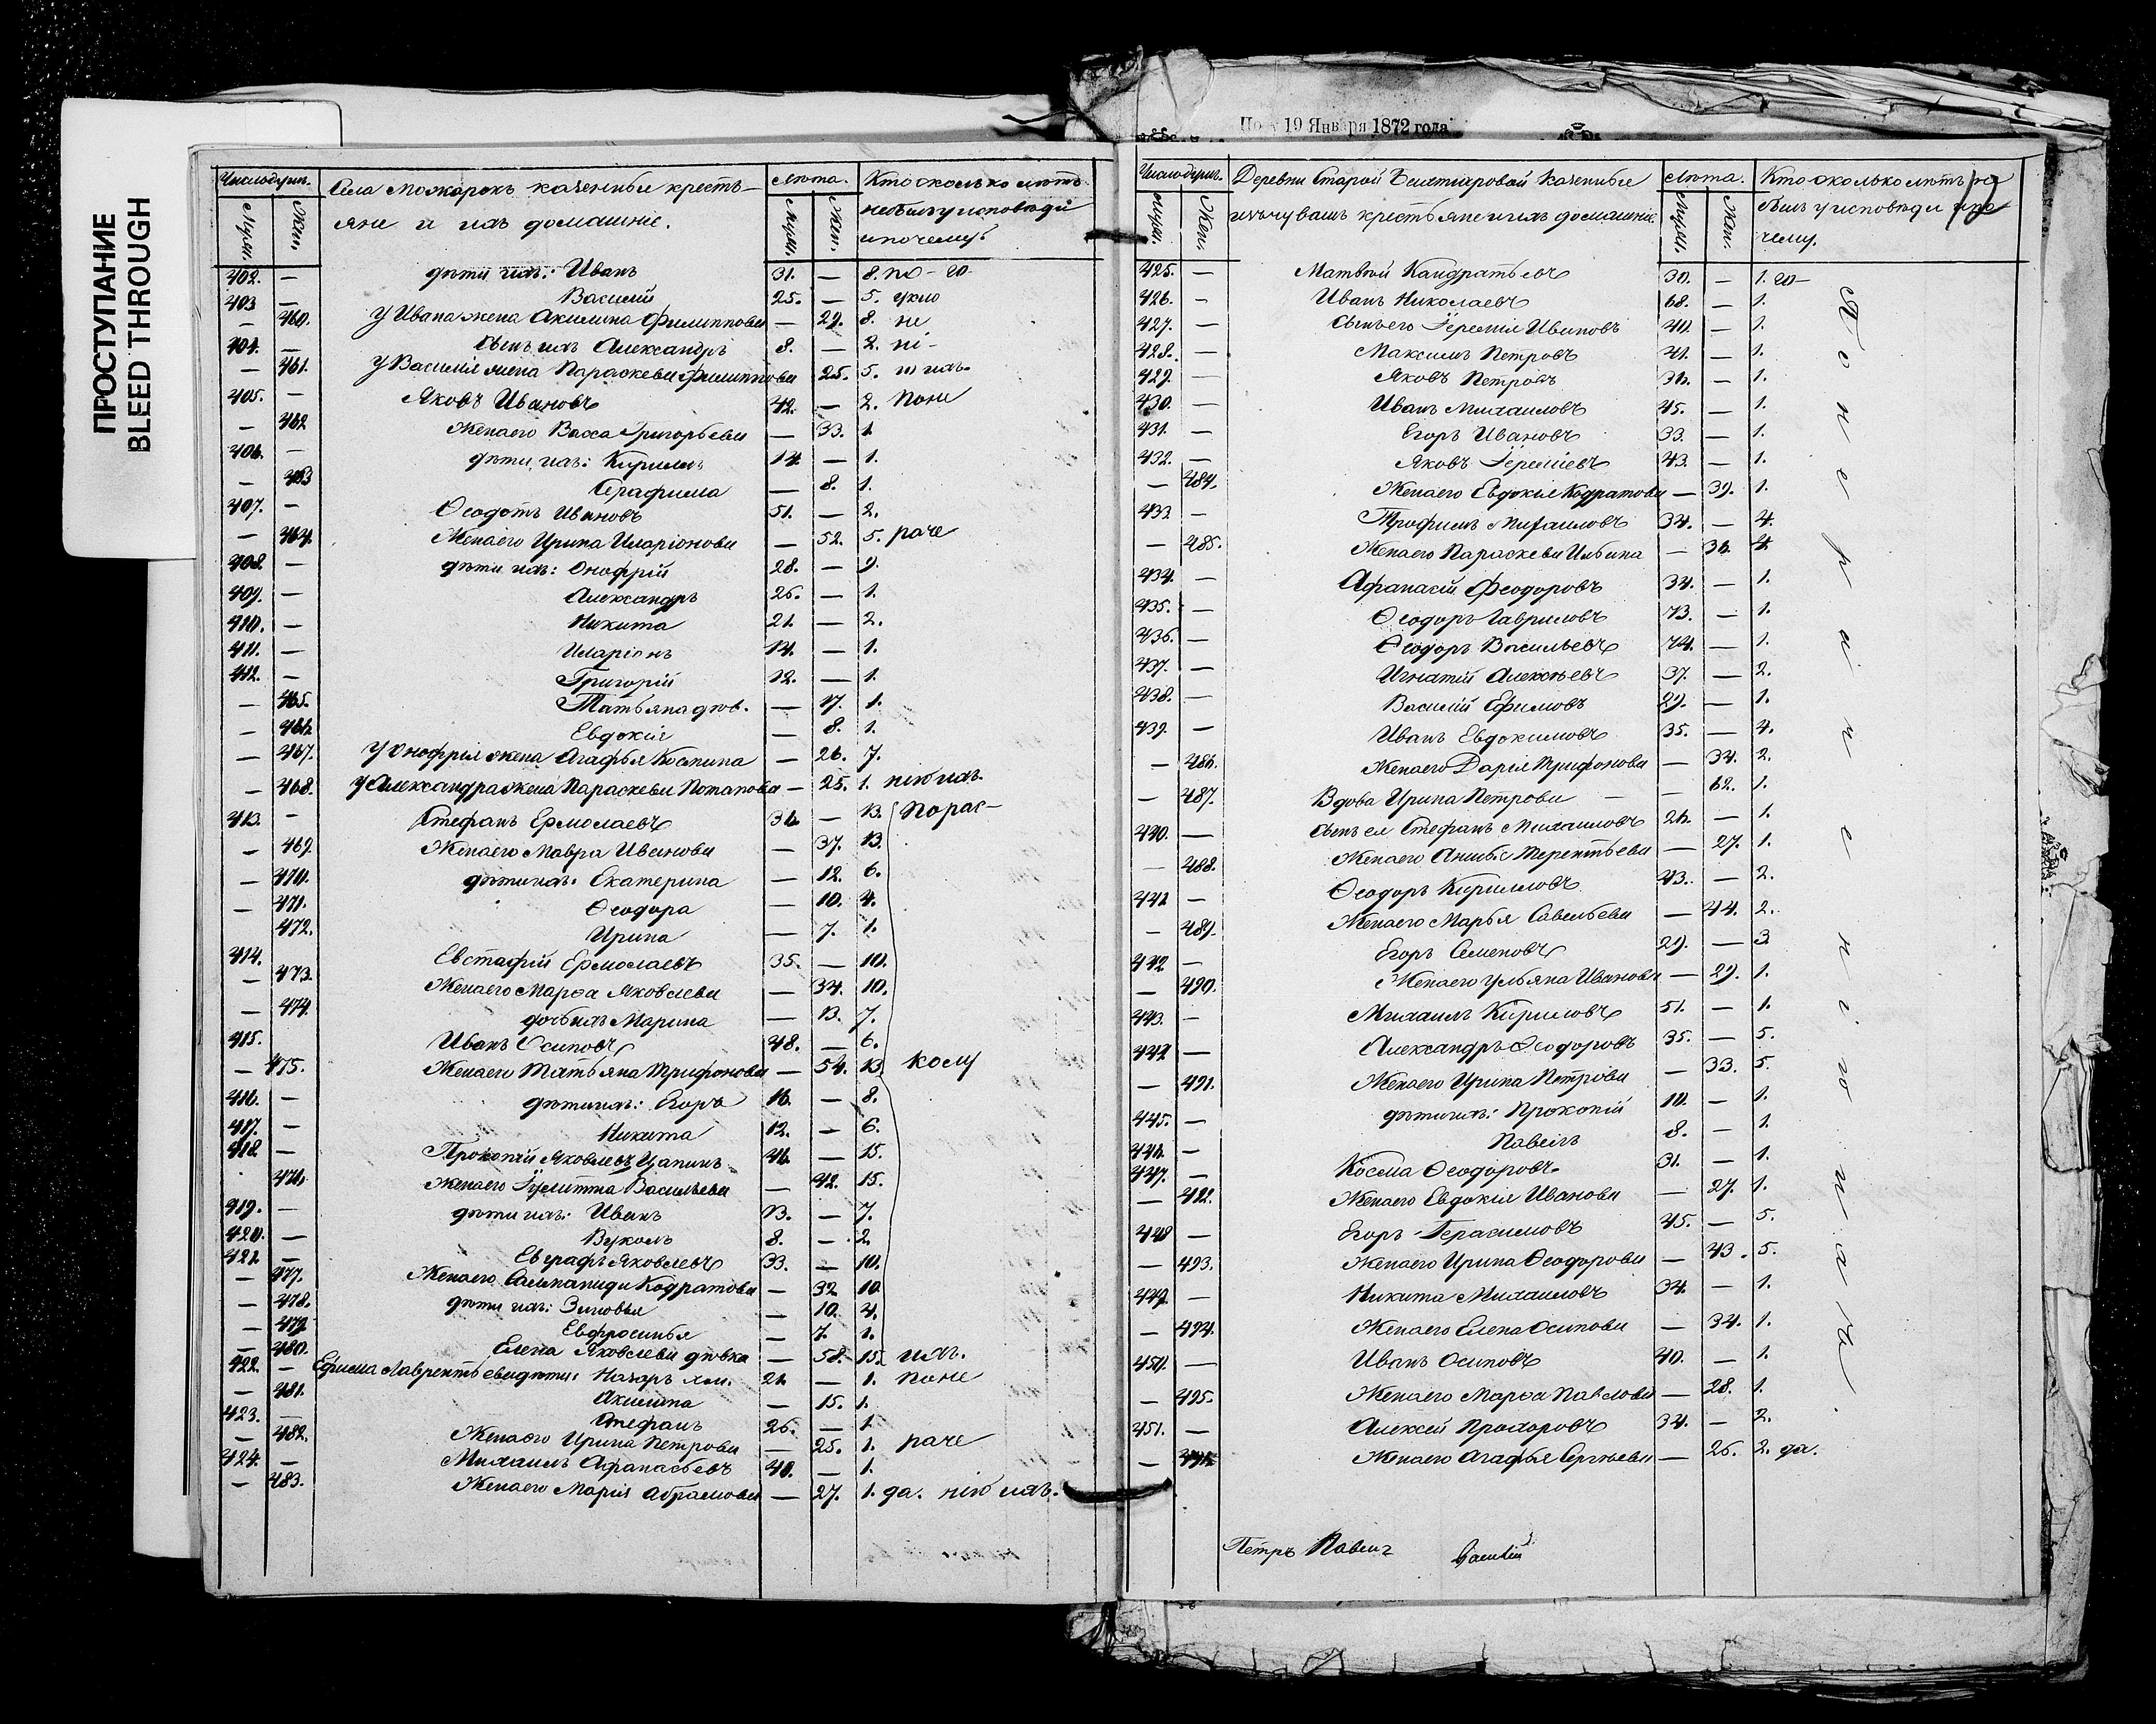 ПРОСТУПАНИЕ
BLEED THROUGH
19 Января 1872 года
Числодушъ. Села Можарокъ казенные кресть- Лѣта. Кто сколько лѣтъ
Муж. Жен. яне и ихъ домашніе. Муж. Жен. небылъ у исповѣди
и почему.
402. — дѣти ихъ: Иванъ 31. — 8. по-
403 — Василий 25. — 5.
— 460. У Ивана жена Акилина Филиппова — 29. 8. не
404. — Сынъ ихъ Александръ 8. — 2.
— 461. У Василія жена Параскева Филиппова 25. 5.
405. — Яковъ Ивановъ 42. — 2. поне
— 462 Жена его Васса Григорьева — 33. 1.
406. — дѣти ихъ: Кириллъ 14. — 1.
— 463 Серафима — 8. 1.
407. — Ѳеодотъ Ивановъ 51. — 2.
— 464. Жена его Ирина Иларіонова — 52. 5. раче
408. — дѣти ихъ: Онофрій 28. — 9.
409. — Александръ 26. — 1.
410. — Никита 21. — 2.
411. — Иларіонъ 14. — 1.
412. — Григорій 12. — 1.
— 465. Татьяна дѣв. — 17. 1.
— 466. Евдокія — 8. 1.
— 467. У Онофрія жена Агафья Космина — 26. 7.
— 468. У Александра жена Параскева Потапова — 25. 1. нію ихъ.
413. — Стефанъ Ермолаевъ 36. — 13. Порас-
— 469. Жена его Мавра Иванова — 37. 13.
— 470. дѣти ихъ: Екатерина — 12. 6.
— 471. Ѳеодора — 10. 4.
472. Ирина — 7. 1.
414. Евстафій Ермолаевъ 35. — 10.
— 473. Жена его Марѳа Яковлева — 34. 10.
— 474. дочь ихъ Марина — 13. 7.
415. Иванъ Осиповъ 48. — 6.
— 475. Жена его Татьяна Трифонова — 54. 13. колу
416. — дѣти ихъ: Егоръ 16. — 8.
417. — Никита 12. — 6.
418. — Прокопій Яковлевъ Цапинъ 46. — 15.
476. Жена его Іулитта Васильева — 42. 15.
419. — дѣти ихъ: Иванъ 13. — 7.
420. — Вуколъ 8. — 2.
421. — Евграфъ Яковлевъ 33. — 10.
— 477. Жена его Кодратова — 32 10.
— 478. дѣти ихъ: Зиновья — 10. 4.
— 479. Евфросинья — 7. 1.
— 480. Елена Яковлева дѣвка — 58. 15. ихъ.
422. — Ефима Лаврентьева дѣти: Назаръ 21. — 1. поне
— 481. Акилина — 15. 1.
423. — Стефанъ 26. — 1.
— 482. Жена его Ирина Петрова — 25. 1. раче
424. — Михаилъ Афанасьевъ 40. — 1.
— 483. Жена его Марія Абрамова — 27. 1. да. нію ихъ.
Числодушъ. Деревни Старой казенные Лѣта. Кто сколько лѣтъ не
Муж. Жен. изъ чувашъ крестьяне и ихъ домашніе. Муж. Жен. былъ у исповѣди и по
чему.
425. — Матвѣй Кандратьевъ 30. — 1.
426. — Иванъ Николаевъ 68. — 1.
427. — Сынъ его Іеремія Ивановъ 40. — 1.
428. — Максимъ Петровъ 41. — 1.
429. — Яковъ Петровъ 36. — 1.
430. — Иванъ Михаиловъ 45. — 1.
431. — Егоръ Ивановъ 33. — 1.
432. — Яковъ Іереміевъ 43. — 1.
— 484. Жена его Евдокія Кодратова — 39. 1.
433 — Трофимъ Михаиловъ 34. — 4.
— 485. Жена его Параскева Ильина — 36. 4.
434. — Афанасій Феодоровъ 34. — 1.
435. — Ѳеодоръ Гавриловъ 73. — 1.
436. — Ѳеодоръ Васильевъ 74. — 1.
437. — Игнатій Алексѣевъ 37. — 2.
438. — Василій Ефимовъ 29. — 1.
439. — Иванъ Евдокимовъ 35. — 4.
— 486. Жена его Дарья Трифонова — 34. 2.
— 487. Вдова Ирина Петрова — 62. 1.
440. — Сынъ ея Стефанъ Михаиловъ 26. — 1.
— 488. Жена его Терентьева — 27. 1.
441 — Ѳеодоръ Кирилловъ 43. — 2.
— 489. Жена его Марья Савельева — 44. 2.
442 — Егоръ Семеновъ 29. — 3.
— 490. Жена его Ульяна Иванова — 29. 1.
443. — Михаилъ Кириловъ 51. — 1.
444 — Александръ Ѳеодоровъ 35. — 5.
— 491. Жена его Ирина Петрова — 33. 5.
445. — дѣти ихъ: Прокопій 10. — 1.
446. — Павелъ 8. — 1.
447. — Косма Ѳеодоровъ 31. — 1.
— 492. Жена его Евдокія Иванова — 27. 1.
448 — Егоръ Герасимовъ 45. — 5.
— 493. Жена его Ирина Ѳеодорова — 43. 5.
449 — Никита Михаиловъ 34. — 1.
— 494. Жена его Елена Осипова — 34. 1.
450. — Иванъ Осиповъ 40. — 1.
— 495. Жена его Марѳа Павлова — 28. 1.
451. — Алексѣй Прохоровъ 34. — 2.
— 496. Жена его Агафья Сергѣева — 26. 2. да.
Петръ Павелъ Василій